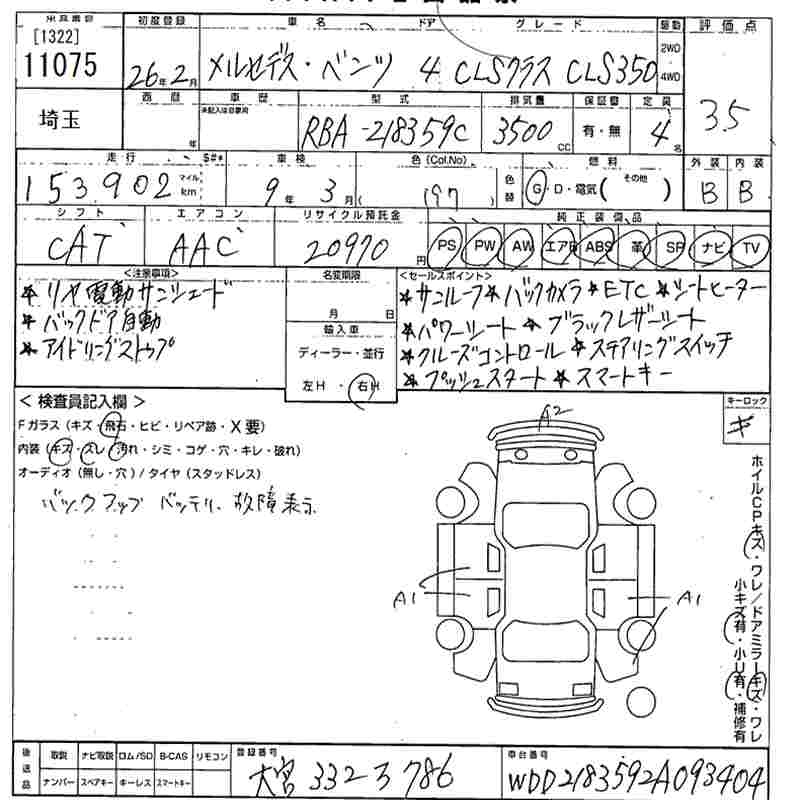 初度登録 車名 ドア グレード 駆動 評価点
[1322]
11075 26年2月 メルセデス・ベンツ 4 CLSクラス CLS350 2WD 4WD
埼玉 西暦 年 車歴 未記入は自家用 型式 RBA-218359C 排気量 3500cc 保証書 有・無 定員 4名 3.5
走行 マイル km 車検 色(Col.No) 色替 燃料 外装 内装
153,902 9年3月 (197) G・D・電気(その他) B B
シフト エアコン リサイクル預託金 純正装備品
CAT AAC 20970円 PS PW AW エアB ABS 革 SR ナビ TV
<注意事項>
★リヤ電動サンシェード
★バックドア自動
★アイドリングストップ
名変期限
月 日
輸入車
ディーラー・並行
左H・右H
<セールスポイント>
★サンルーフ★バックカメラ★ETC★シートヒーター
★パワーシート★ブラックレザーシート
★クルーズコントロール★ステアリングスイッチ
★プッシュスタート★スマートキー
<検査員記入欄>
Fガラス(キズ・飛石・ヒビ・リペア跡・X要)
内装(キズ・スレ・汚れ・シミ・コゲ・穴・キレ・破れ)
オーディオ(無し・穴)/タイヤ(スタッドレス)
バックアップ バッテリー故障表示
A2
A1
A1
キーロック
キ
ホイルCPキズ・ワレ/ドアミラーキズ・ワレ
小キズ有・小U有・補修有
後送品 取説 ナビ取説 ロム/SD B-CAS リモコン
ナンバー スペアキー キーレス スマートキー
登録番号
大宮 332 ス 786
車台番号
WDD2183592A093404